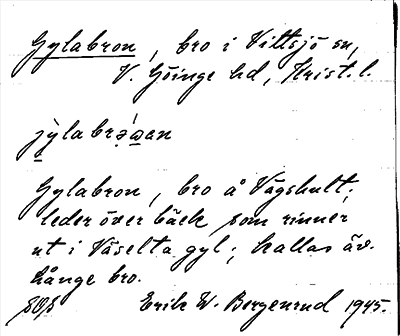 Gylabron, bro i Vittsjö sn,
V. Göinge hd, Krist. l.
jỳlabrə́ɯan
Gylabron, bro å Vägshult;
leder över bäck som rinner
ut i Väselta gyl; kallas äv.
hånge bro.
Erik W. Bergenrud 1945.